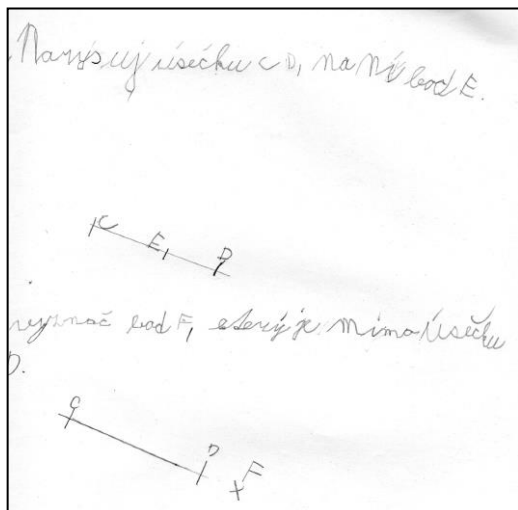 Narýsuj úsečku CD, na ní bod E.
C E D
vyznač bod F, eterý je mimo úsečku
D.
C D F